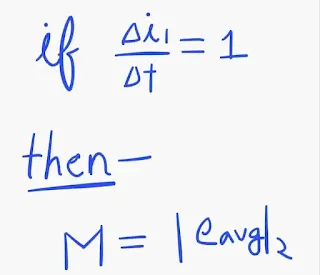 if Δi₁/Δt = 1
then—
M = |eavg|₂